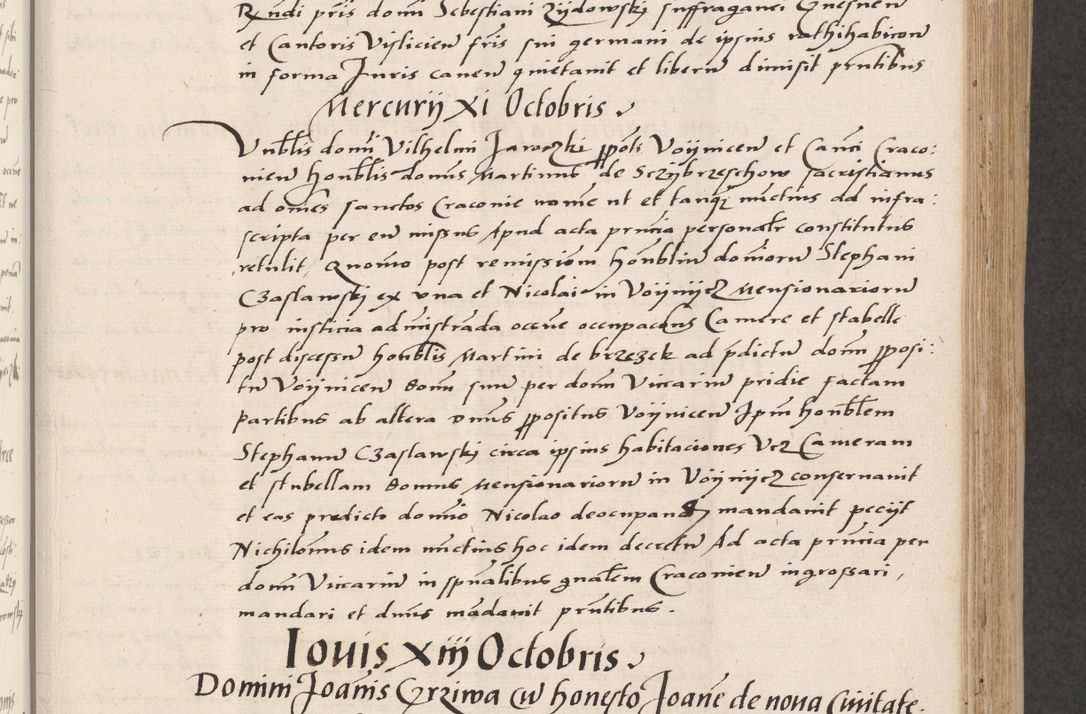 Rndi pris domi Sebestiani Zijdowskj suffraganei Gnesnen
et Cantoris Vislicien fris sui germani de ipsius rathihabicon
in forma Juris canen quietauit et liberu dimisit prntibus
Mercurij XI Octobris
Vnblis domi Vilhelmi Jaroczki ppoti Voijnicen et Canci Craco:
nien honblis domus Martinus de Sczijbrzeschow sacristianus
ad omes sanctos Craconie nomie ut et tanq nuctius ad infra:
scripta per eu missus Apud acta prncia personalr constitutus
retulit, Quomo post remissiom honbliu domoru Stephani
Czaslawskj ex vna et Nicolai in Voijnijcz Mensionarioru
pro iusticia admistrada occne occupacons Camere et stabelle
post discessu honblis Martini de brzezek ad pdictu domu pposi:
tu Voijnicen domu suu per domu Vicariu pridie factam
Partibus ab altera dnus ppositus Voijnicen Ipm honblem
Stephanu Czaslawskj circa ipsius habitaciones Vcz Cameram
et stubellam domus Mensionarioru in Voijnijcz conseruauit
et eas predicto domio Nicolao deocupand mandauit peciit
Nichilomus idem nuctius hoc idem decretu Ad acta prncia per
domu Vicariu in spualibus gnalem Craconien ingrossari,
mandari et dnus madauit prntibus.
Iouis XIII Octobris
Domini Joanis Czrziwa cu honesto Joane de noua Ciuitate.